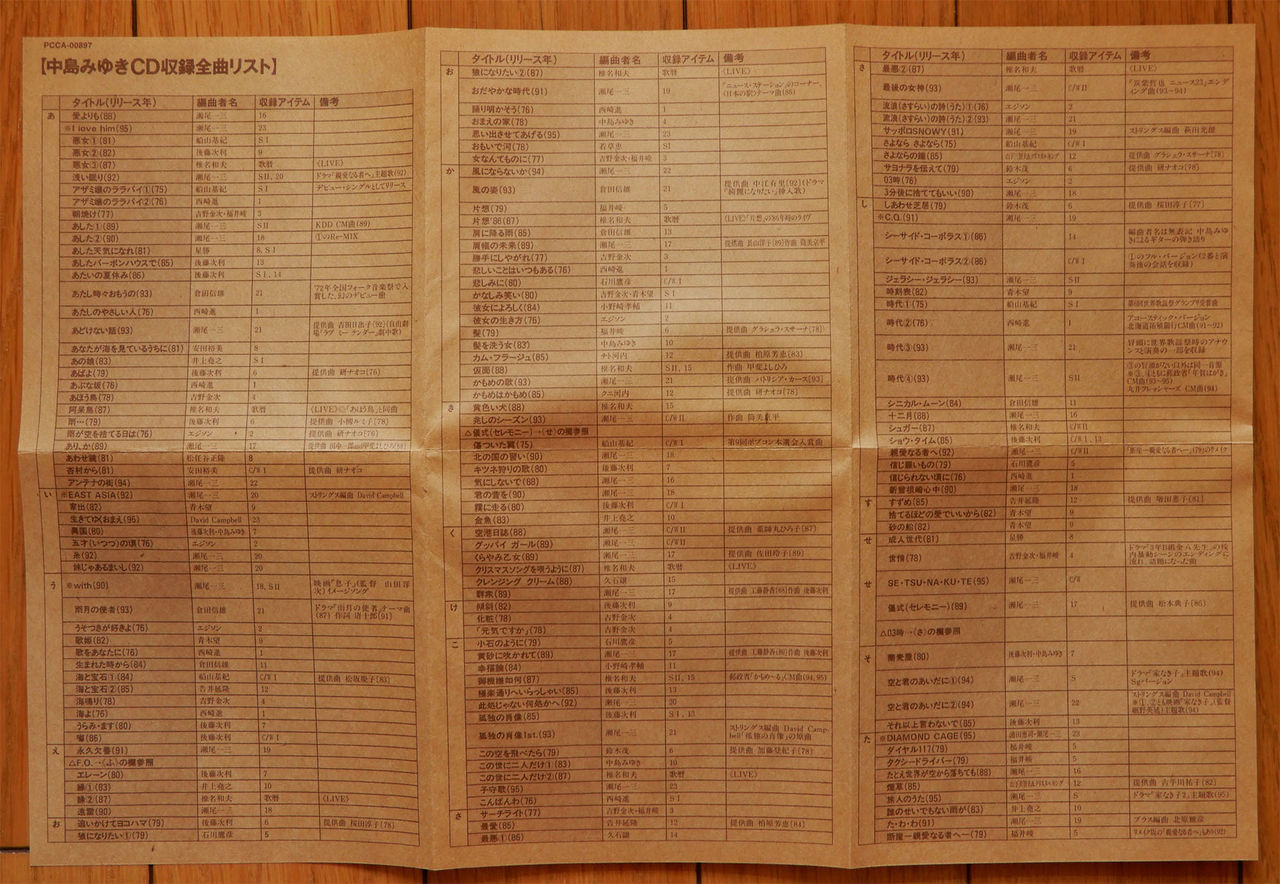 PCCA-00897
【中島みゆきCD収録全曲リスト】
タイトル(リリース年) 編曲者名 収録アイテム 備考
あ 愛よりも(88) 瀬尾一三 16
※I love him(95) 瀬尾一三 23
悪女①(81) 船山基紀 S I
悪女②(82) 後藤次利 9
悪女③(87) 椎名和夫 歌暦 〈LIVE〉
浅い眠り(92) 瀬尾一三 SII、20 ドラマ「親愛なる者へ」主題歌(92)
アザミ嬢のララバイ①(75) 船山基紀 S I デビュー・シングルとしてリリース
アザミ嬢のララバイ②(76) 西崎進 1
朝焼け(77) 吉野金次・福井峻 3
あした①(89) 瀬尾一三 SII KDD CM曲(89)
あした②(90) 瀬尾一三 18 ①のRe-MIX
あした天気になれ(81) 星勝 8、S I
あしたバーボンハウスで(85) 後藤次利 13
あたいの夏休み(86) 後藤次利 S I、14
あたし時々おもうの(93) 倉田信雄 21 '72年全国フォーク音楽祭で入
賞した、幻のデビュー曲
あたしのやさしい人(76) 西崎進 1
あどけない話(93) 瀬尾一三 21 提供曲 吉田日出子(92)(自由劇
場「ラブ ミー テンダー」劇中歌)
あなたが海を見ているうちに(81) 安田裕美 8
あの娘(83) 井上堯之 S I
あばよ(79) 後藤次利 6 提供曲 研ナオコ(76)
あぶな坂(76) 西崎進 1
あほう鳥(78) 吉野金次 4
阿呆鳥(87) 椎名和夫 歌暦 〈LIVE〉◎「あほう鳥」と同曲
雨…(79) 後藤次利 6 提供曲 小柳ルミ子(78)
雨が空を捨てる日は(76) エジソン 2 提供曲 研ナオコ(76)
あり、か(89) 瀬尾一三 17
あわせ鏡(81) 松任谷正隆 8
杏村から(81) 安田裕美 C/W I 提供曲 研ナオコ
アンテナの街(94) 瀬尾一三 22
い ※EAST ASIA(92) 瀬尾一三 20 ストリングス編曲 David Campbell
家出(82) 青木望 9
生きてゆくおまえ(95) David Campbell 23
異国(80) 後藤次利・中島みゆき 7
五才(いつつ)の頃(76) エジソン 2
糸(92) 瀬尾一三 20
妹じゃあるまいし(92) 瀬尾一三 20
う ※with(90) 瀬尾一三 18、SII 映画「息子」(監督 山田洋
次)イメージソング
雨月の使者(93) 倉田信雄 21 ドラマ「雨月の使者」テーマ曲
(87) 作詞 唐十郎(91)
うそつきが好きよ(76) エジソン 2
歌姫(82) 青木望 9
歌をあなたに(76) 西崎進 1
生まれた時から(84) 倉田信雄 11
海と宝石①(84) 船山基紀 C/W I 提供曲 松坂慶子(83)
海と宝石②(85) 苫井延隆 12
海鳴り(78) 吉野金次 4
海よ(76) 西崎進 1
うらみ・ます(80) 後藤次利 7
噂(86) 後藤次利 C/W I
え 永久欠番(91) 瀬尾一三 19
△F.O.→(ふ)の欄参照
エレーン(80) 後藤次利 7
縁①(83) 井上堯之 10
縁②(87) 椎名和夫 歌暦 〈LIVE〉
遠雷(90) 瀬尾一三 18
お 追いかけてヨコハマ(79) 後藤次利 6 提供曲 桜田淳子(78)
狼になりたい①(79) 石川鷹彦 5
タイトル(リリース年) 編曲者名 収録アイテム 備考
お 狼になりたい②(87) 椎名和夫 歌暦 〈LIVE〉
おだやかな時代(91) 瀬尾一三 19 「ニュース・ステーション」のコーナー、
〈日本の駅〉テーマ曲(86)
踊り明かそう(76) 西崎進 1
おまえの家(78) 中島みゆき 4
思い出させてあげる(95) 瀬尾一三 23
おもいで河(78) 若草恵 SI
女なんてものに(77) 吉野金次・福井峻 3
か 風にならないか(94) 瀬尾一三 22
風の姿(93) 倉田信雄 21 提供曲 中江有里(92)(ドラマ
「綺麗になりたい」挿入歌)
片想(79) 福井峻 5
片想'86(87) 椎名和夫 歌暦 〈LIVE〉「片想」の'86年時のライヴ
肩に降る雨(85) 倉田信雄 13
肩幅の未来(89) 瀬尾一三 17 提供曲 長山洋子(89)作曲 筒美京平
勝手にしやがれ(77) 吉野金次 3
悲しいことはいつもある(76) 西崎進 1
悲しみに(80) 石川鷹彦 C/W I
かなしみ笑い(80) 吉野金次・青木望 S I
彼女によろしく(84) 小野崎孝輔 11
彼女の生き方(76) エジソン 2
髪(79) 福井峻 6 提供曲 グラシェラ・スサーナ(78)
髪を洗う女(83) 中島みゆき 10
カム・フラージュ(85) チト河内 12 提供曲 柏原芳恵(83)
仮面(88) 椎名和夫 SII、15 作曲 甲斐よしひろ
かもめの歌(93) 瀬尾一三 21 提供曲 パトリシア・カース(93)
かもめはかもめ(85) クニ河内 12 提供曲 研ナオコ(78)
き 黄色い犬(88) 椎名和夫 15
兆しのシーズン(93) 瀬尾一三 C/W II 作曲 筒美京平
△儀式(セレモニー)→(せ)の欄参照
傷ついた翼(75) 船山基紀 C/W I 第9回ポプコン本選会入賞曲
北の国の習い(90) 瀬尾一三 18
キツネ狩りの歌(80) 後藤次利 7
気にしないで(88) 瀬尾一三 16
君の昔を(90) 瀬尾一三 18
僕に走る(80) 石川鷹彦 C/W I
金魚(83) 井上堯之 10
く 空港日誌(88) 瀬尾一三 C/W II 提供曲 薬師丸ひろ子(87)
グッバイ ガール(89) 瀬尾一三 C/W II
くらやみ乙女(89) 瀬尾一三 17 提供曲 佐田玲子(89)
クリスマスソングを唄うように(87) 椎名和夫 歌暦 〈LIVE〉
クレンジング クリーム(88) 久石譲 15
群衆(89) 瀬尾一三 17 提供曲 工藤静香(88)作曲 後藤次利
け 傾斜(82) 後藤次利 9
化粧(78) 吉野金次 4
「元気ですか」(78) 吉野金次 4
こ 小石のように(79) 石川鷹彦 5
黄砂に吹かれて(89) 瀬尾一三 17 提供曲 工藤静香(89)作曲 後藤次利
幸福論(84) 小野崎孝輔 11
御機嫌如何(87) 椎名和夫 SII、15 郵政省「かもめ〜る」CM曲(94、95)
極楽通りへいらっしゃい(85) 後藤次利 13
此処じゃない何処かへ(92) 瀬尾一三 20
孤独の肖像(85) 後藤次利 S I、13
孤独の肖像1st.(93) 瀬尾一三 21 ストリングス編曲 David Camp-
bell「孤独の肖像」の原曲
この空を飛べたら(79) 鈴木茂 6 提供曲 加藤登紀子(78)
この世に二人だけ①(83) 中島みゆき 10
この世に二人だけ②(87) 椎名和夫 歌暦 〈LIVE〉
子守歌(95) 瀬尾一三 23
こんばんわ(76) 西崎進 S I
さ サーチライト(77) 吉野金次・福井峻 3
最愛(85) 苫井延隆 12 提供曲 柏原芳恵(84)
最悪①(86) 久石譲 14
タイトル(リリース年) 編曲者名 収録アイテム 備考
さ 最悪②(87) 椎名和夫 歌暦 〈LIVE〉
最後の女神(93) 瀬尾一三 C/W II 「筑紫哲也 ニュース23」エンデ
ィング曲(93〜94)
流浪(さすらい)の詩(うた)①(76) エジソン 2
流浪(さすらい)の詩(うた)②(93) 瀬尾一三 21
サッポロSNOWY(91) 瀬尾一三 19 ストリングス編曲 萩田光雄
さよなら さよなら(75) 船山基紀 C/W I
さよならの鐘(85) 12 提供曲 グラシェラ・スサーナ(78)
サヨナラを伝えて(79) 鈴木茂 6 提供曲 研ナオコ(78)
03時(76) エジソン 2
3分後に捨ててもいい(90) 瀬尾一三 18
し しあわせ芝居(79) 鈴木茂 6 提供曲 桜田淳子(77)
※C.Q.(91) 瀬尾一三 19
シーサイド・コーポラス①(86) 14 編曲者名は無表記 中島みゆ
きによるギターの弾き語り
シーサイド・コーポラス②(86) C/W I ①のフル・バージョン(2番と演
奏後の会話を収録)
ジェラシー・ジェラシー(93) 瀬尾一三 SII
時刻表(82) 青木望 9
時代①(75) 船山基紀 S I 第6回世界歌謡祭グランプリ受賞曲
時代②(76) 西崎進 1 アコースティック・バージョン
北海道拓殖銀行CM曲(91〜92)
時代③(93) 瀬尾一三 21 冒頭に世界歌謡祭時のアナウ
ンスと演奏の一部を収録
時代④(93) 瀬尾一三 SII ③の冒頭がない以外は同一音源
※③、④ともに郵政省「年賀はがき」
CM曲(93〜95)
丸井フレッシャーズ CM曲(94)
シニカル・ムーン(84) 倉田信雄 11
十二月(88) 瀬尾一三 16
シュガー(87) 椎名和夫 C/W II
ショウ・タイム(85) 後藤次利 C/W I、13
親愛なる者へ(92) 瀬尾一三 C/W II 「断崖ー親愛なる者へー」(79)のリメイク
信じ難いもの(79) 石川鷹彦 5
信じられない頃に(76) 西崎進 1
新曽根崎心中(90) 瀬尾一三 18
す すずめ(85) 苫井延隆 12 提供曲 増田恵子(81)
捨てるほどの愛でいいから(82) 青木望 9
砂の船(82) 青木望 9
せ 成人世代(81) 星勝 8
世情(78) 吉野金次・福井峻 4 ドラマ「3年B組金八先生」の校
内暴動シーンのエンディングに
流れ、話題になった曲
せ SE・TSU・NA・KU・TE(95) 瀬尾一三 C/W
儀式(セレモニー)(89) 瀬尾一三 17 提供曲 松本典子(86)
△03時→(さ)の欄参照
そ 蕎麦屋(80) 後藤次利・中島みゆき 7
空と君のあいだに①(94) 瀬尾一三 S ドラマ「家なき子」主題歌(94)
Sgバージョン
空と君のあいだに②(94) 瀬尾一三 22 ストリングス編曲 David Campbell
※①、②とも映画「家なき子」(監督
細野英延)主題歌(94)
それ以上言わないで(85) 後藤次利 13
た ※DIAMOND CAGE(95) 浦田恵司・瀬尾一三 23
ダイヤル117(79) 福井峻 5
タクシードライバー(79) 福井峻 5
たとえ世界が空から落ちても(88) 瀬尾一三 16
煙草(85) 12 提供曲 古手川祐子(82)
旅人のうた(95) 瀬尾一三 S ドラマ「家なき子2」主題歌(95)
誰のせいでもない雨が(83) 井上堯之 10
た・わ・わ(91) 瀬尾一三 19 ブラス編曲 北原雅彦
断崖ー親愛なる者へー(79) 福井峻 5 リメイク版の「親愛なる者へ」もあり(92)